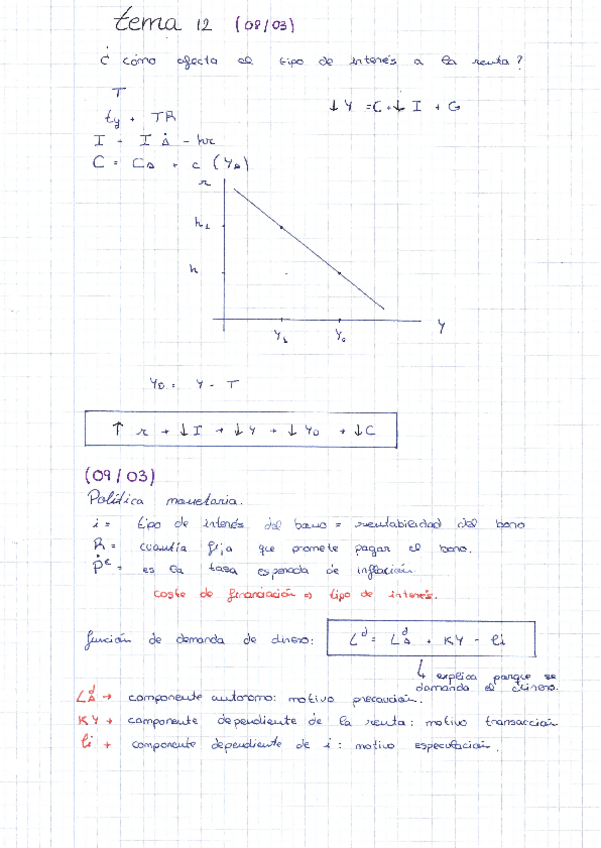 tema 12 (08/03)
¿ cómo afecta el tipo de interés a la renta?
T
↓ Y = C + ↓ I + G
ty + TR
I = I A - hr
C = CA + c (YD)
r
r1
r
Y
Y1
Y0
YD = Y - T
↑ r → ↓ I → ↓ Y → ↓ YD → ↓ C
(09/03)
Política monetaria.
i = tipo de interés del bono = rentabilidad del bono
R = cuantía fija que promete pagar el bono.
Ṗe = es la tasa esperada de inflación.
coste de financiación => tipo de interés.
función de demanda de dinero: Ld = LdA + KY - li
↳ explica porque se
demanda el dinero.
LdA → componente autónomo: motivo precaución.
KY → componente dependiente de la renta: motivo transacción
li → componente dependiente de i: motivo especulación.